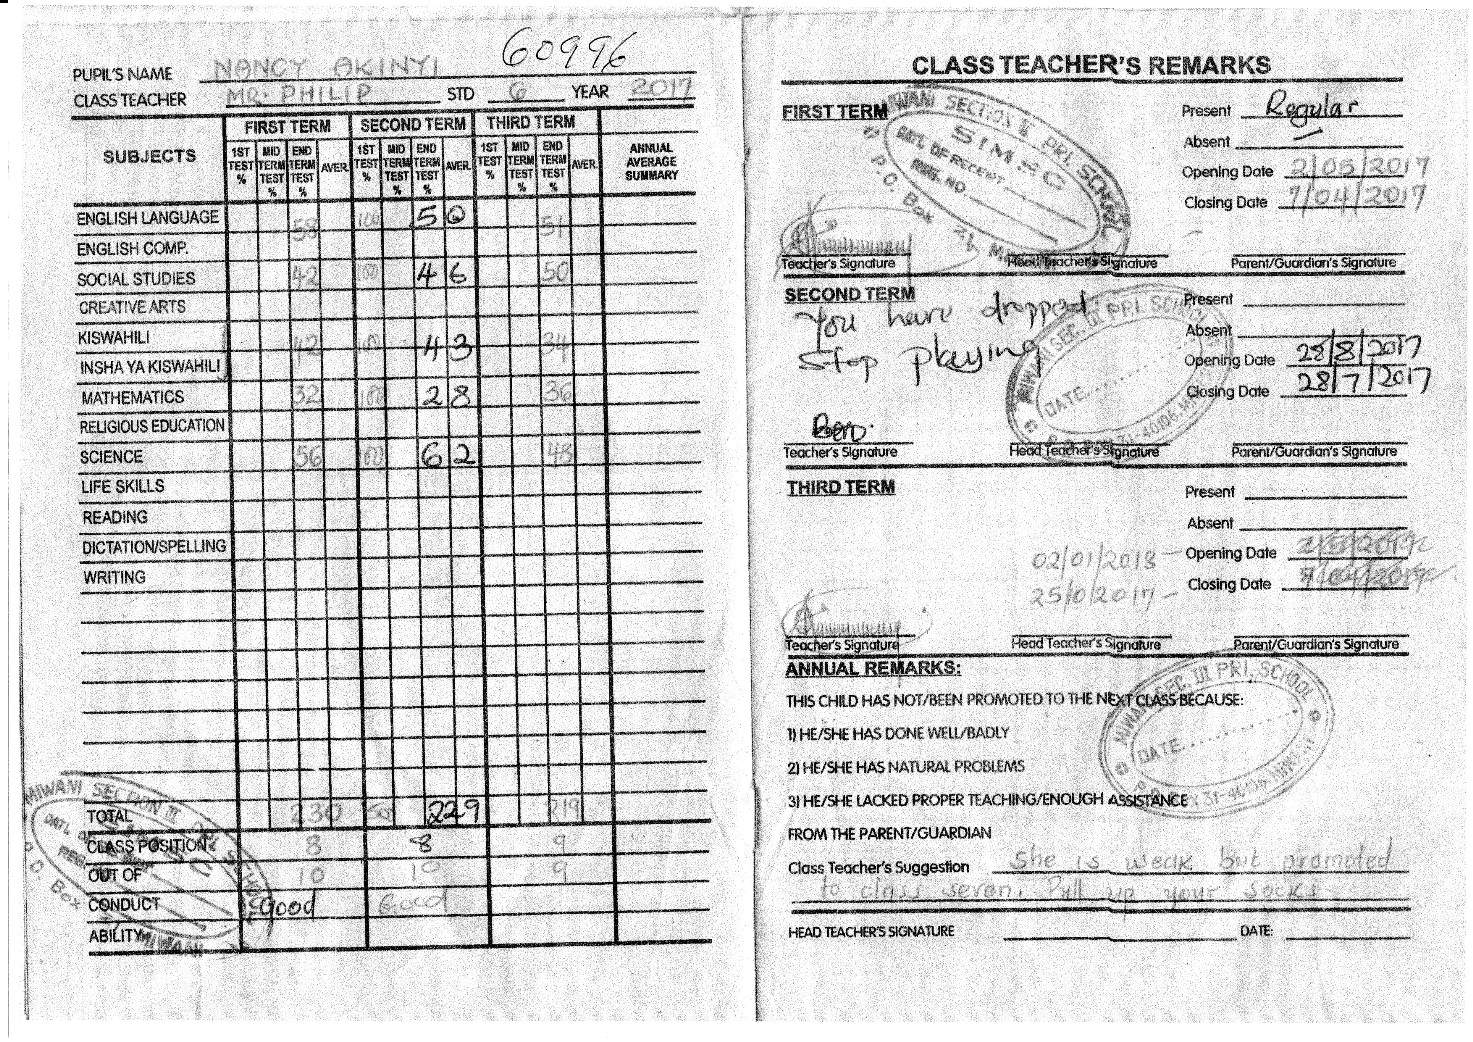 60996
PUPIL'S NAME NANCY AKINYI
CLASS TEACHER MR. PHILIP STD 6 YEAR 2017
SUBJECTS FIRST TERM SECOND TERM THIRD TERM ANNUAL AVERAGE SUMMARY
1ST TEST % MID TERM TEST % END TERM TEST % AVER. 1ST TEST % MID TERM TEST % END TERM TEST % AVER. 1ST TEST % MID TERM TEST % END TERM TEST % AVER.
ENGLISH LANGUAGE 58 100 50 51
ENGLISH COMP.
SOCIAL STUDIES 42 100 46 50
CREATIVE ARTS
KISWAHILI 42 100 43 34
INSHA YA KISWAHILI
MATHEMATICS 32 100 28 36
RELIGIOUS EDUCATION
SCIENCE 56 100 62 48
LIFE SKILLS
READING
DICTATION/SPELLING
WRITING
TOTAL 230 500 229 219
CLASS POSITION 8 8 9
OUT OF 10 10 9
CONDUCT Good Good
ABILITY
MIWANI SECTION II
P.O. Box
CLASS TEACHER'S REMARKS
FIRST TERM
MIWANI SECTION II PRI. SCHOOL
DATE OF RECEIPT
REG. NO
P.O. Box 31, M
Present Regular
Absent –
Opening Date 2/05/2017
Closing Date 7/04/2017
Teacher's Signature Head Teacher's Signature Parent/Guardian's Signature
SECOND TERM
You have dropped
Stop playing
MIWANI SEC. III PRI. SCHOOL
DATE
Present
Absent
Opening Date 28/8/2017
Closing Date 28/7/2017
Teacher's Signature Head Teacher's Signature Parent/Guardian's Signature
THIRD TERM
Present
Absent
02/01/2018 – Opening Date
25/0/2017 – Closing Date
Teacher's Signature Head Teacher's Signature Parent/Guardian's Signature
ANNUAL REMARKS:
THIS CHILD HAS NOT/BEEN PROMOTED TO THE NEXT CLASS BECAUSE:
1) HE/SHE HAS DONE WELL/BADLY
2) HE/SHE HAS NATURAL PROBLEMS
3) HE/SHE LACKED PROPER TEACHING/ENOUGH ASSISTANCE
MIWANI SEC. III PRI. SCHOOL
DATE
FROM THE PARENT/GUARDIAN
Class Teacher's Suggestion She is weak but promoted
to class seven. Pull up your socks
HEAD TEACHER'S SIGNATURE DATE: